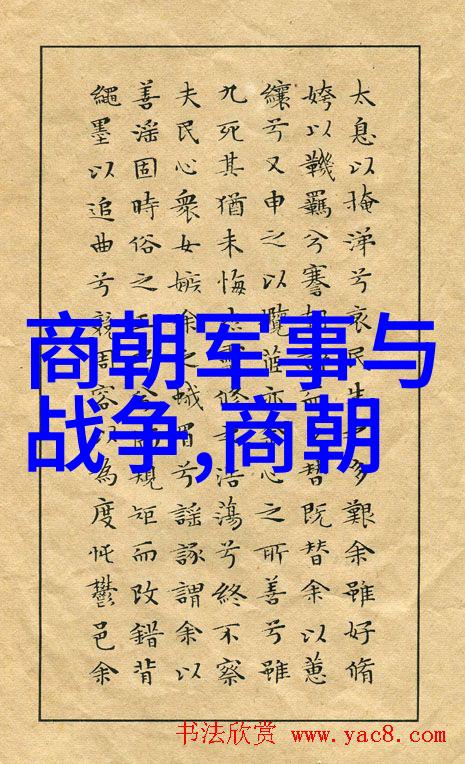 太息以掩涕兮哀民生多艱余雖好脩
姱以鞿羈兮謇而替既替余以蕙
纕兮又申之以攬茝亦心之所善兮雖
九死其猶未悔脩浩蕩兮終不察
夫民心衆女嫉余之蛾眉兮謠諑謂余以
善淫固時俗之規矩而改錯背
繩墨以追曲兮競周容以為度忳鬱邑余
商朝军事与
战争,商朝
书法欣赏 www.yac8.com